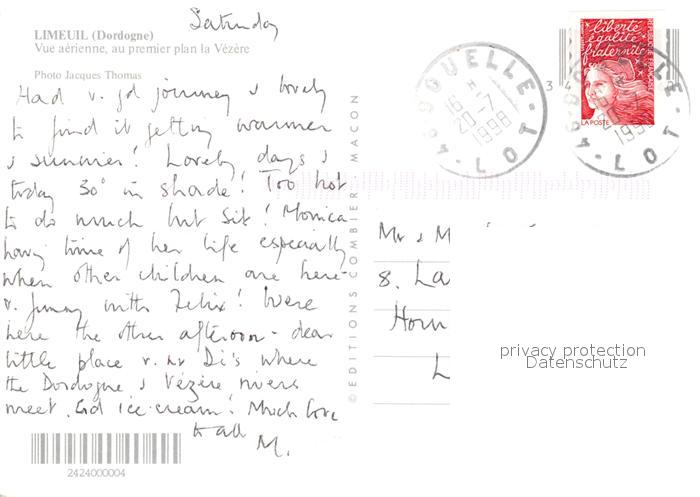 Saturday
LIMEUIL (Dordogne)
Vue aérienne, au premier plan la Vézère
Photo Jacques Thomas
Had v. gd journey & lovely
to find it getting warmer
& sunnier! Lovely days &
today 30° in shade! Too hot
to do much but sit! Monica
having time of her life especially
when other children are here -
v. funny with Felix! Were
here the other afternoon - dear
little place v. nr Di's where
the Dordogne & Vézère rivers
meet. Gd ice-cream! Much love
to all
M.
2424000004
© EDITIONS COMBIER MACON
liberté
égalité
fraternité
RÉPUBLIQUE FRANÇAISE
LA POSTE
16 H
20-7
1998
LOT
20-7
1998
LOT
Mr & M
8. La
Horn
L
privacy protection
Datenschutz